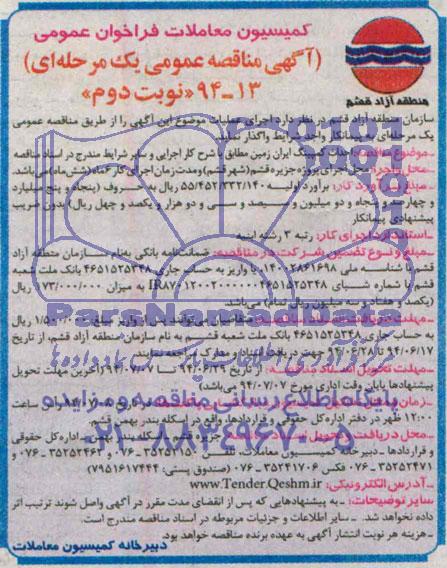 کمیسیون معاملات فراخوان عمومی
(آگهی مناقصه عمومی یک مرحله‌ای)
۹۴-۱۳ «نوبت دوم»
منطقه آزاد قشم
سازمان منطقه آزاد قشم در نظر دارد اجرای عملیات موضوع این آگهی را از طریق مناقصه عمومی
یک مرحله‌ای به پیمانکار واجد شرایط واگذار نماید.
ـ موضوع مناقصه: احداث کمپینگ ایران زمین مطابق با شرح کار اجرایی و سایر شرایط مندرج در اسناد مناقصه
ـ محل اجرا: محل اجرای پروژه جزیره قشم (شهر قشم) و مدت زمان اجرای کار ۶ ماه (شش ماه) می‌باشد.
برآورد کار: برآورد اولیه ۵۵/۴۵۲/۳۳۲/۱۴۰ ریال به حروف (پنجاه و پنج میلیارد
و چهارصد و پنجاه و دو میلیون و سیصد و سی و دو هزار و یکصد و چهل ریال) بدون ضریب
پیشنهادی پیمانکار
ـ استاندارد اجرای کار: رتبه ۳ رشته ابنیه
ـ مبلغ و نوع تضمین شرکت در مناقصه: ضمانت‌نامه بانکی بنام سازمان منطقه آزاد
قشم با شناسه ملی ۱۴۰۰۲۸۶۱۶۹۸ یا واریز به حساب جاری ۴۶۵۱۵۲۵۳۴۸ بانک ملت شعبه
قشم با شماره شبای به میزان ریال
(یکصد و هفتاد و سه میلیون ریال تمام) می‌باشد.
ـ مهلت دریافت متقاضیان می‌توانند پس از واریز مبلغ ۱/۵۰۰/۰۰۰ ریال
به حساب جاری ۴۶۵۱۵۲۵۳۴۸ بانک ملت شعبه قشم به نام سازمان منطقه آزاد قشم، از تاریخ
۹۴/۰۶/۱۷ تا ۹۴/۰۶/۲۸ جهت دریافت اسناد و مدارک مراجعه نمایند.
ـ مهلت تحویل اسناد از تاریخ ۹۴/۰۶/۲۹ تا ۹۴/۰۷/۰۷ (آخرین مهلت تحویل
پیشنهادها پایان وقت اداری مورخ ۹۴/۰۷/۰۷ می‌باشد)
ـ زمان و ساعت
۱۲:۰۰ ظهر در دفتر اداره کل حقوقی و قراردادها واقع در اسکله بندر بهمن قشم.
ـ محل دریافت و تحویل جزیره قشم اسکله بندر بهمن اداره کل حقوقی
و قراردادها ـ دبیرخانه کمیسیون معاملات، تلفن ۳۵۲۵۲۱۵۰-۰۷۶ و ۳۵۲۵۲۴۶۳-۰۷۶ و
۳۵۲۵۲۴۷۱-۰۷۶ فکس ۳۵۲۴۱۷۰۶-۰۷۶ (صندوق پستی: ۷۹۵۱۶۱۷۴۴۴)
ـ آدرس الکترونیکی: www.Tender.Qeshm.ir
سایر توضیحات: ـ به پیشنهادهایی که پس از انقضای مدت مقرر در آگهی واصل شوند ترتیب اثر
داده نخواهد شد. ـ سایر اطلاعات و جزئیات مربوطه در اسناد مناقصه مندرج است.
ـ هزینه هر نوبت انتشار آگهی به عهده برنده مناقصه خواهد بود.
دبیرخانه کمیسیون معاملات
ParsNamadData
پایگاه اطلاع رسانی مناقصه و مزایده
۰۲۱-۸۸۳۴۹۶۷۰-۵